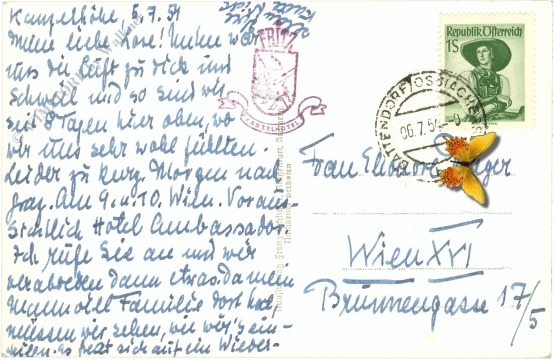 Kanzelhöhe, 5.7.54
Meine liebe Lore! Unten war
uns die Luft zu dick und
schwül und so sind wir
seit 8 Tagen hier oben, wo
wir uns sehr wohl fühlten.
Leider zu kurz. Morgen nach
Graz. Am 9. u. 10. Wien. Voraus-
sichtlich Hotel Ambassador.
Ich rufe Sie an und wir
verabreden dann etwas. Da mein
Mann viel Familie dort hat,
müssen wir sehen, wie wir's ein-
teilen. Es freut sich auf ein Wieder-
FRITZ
KANZELHOTEL
Republik Österreich
1S
SATTENDORF (OSSIACHERSEE)
06.7.54
Frau
Wien XVI
Brunnengasse 17/5